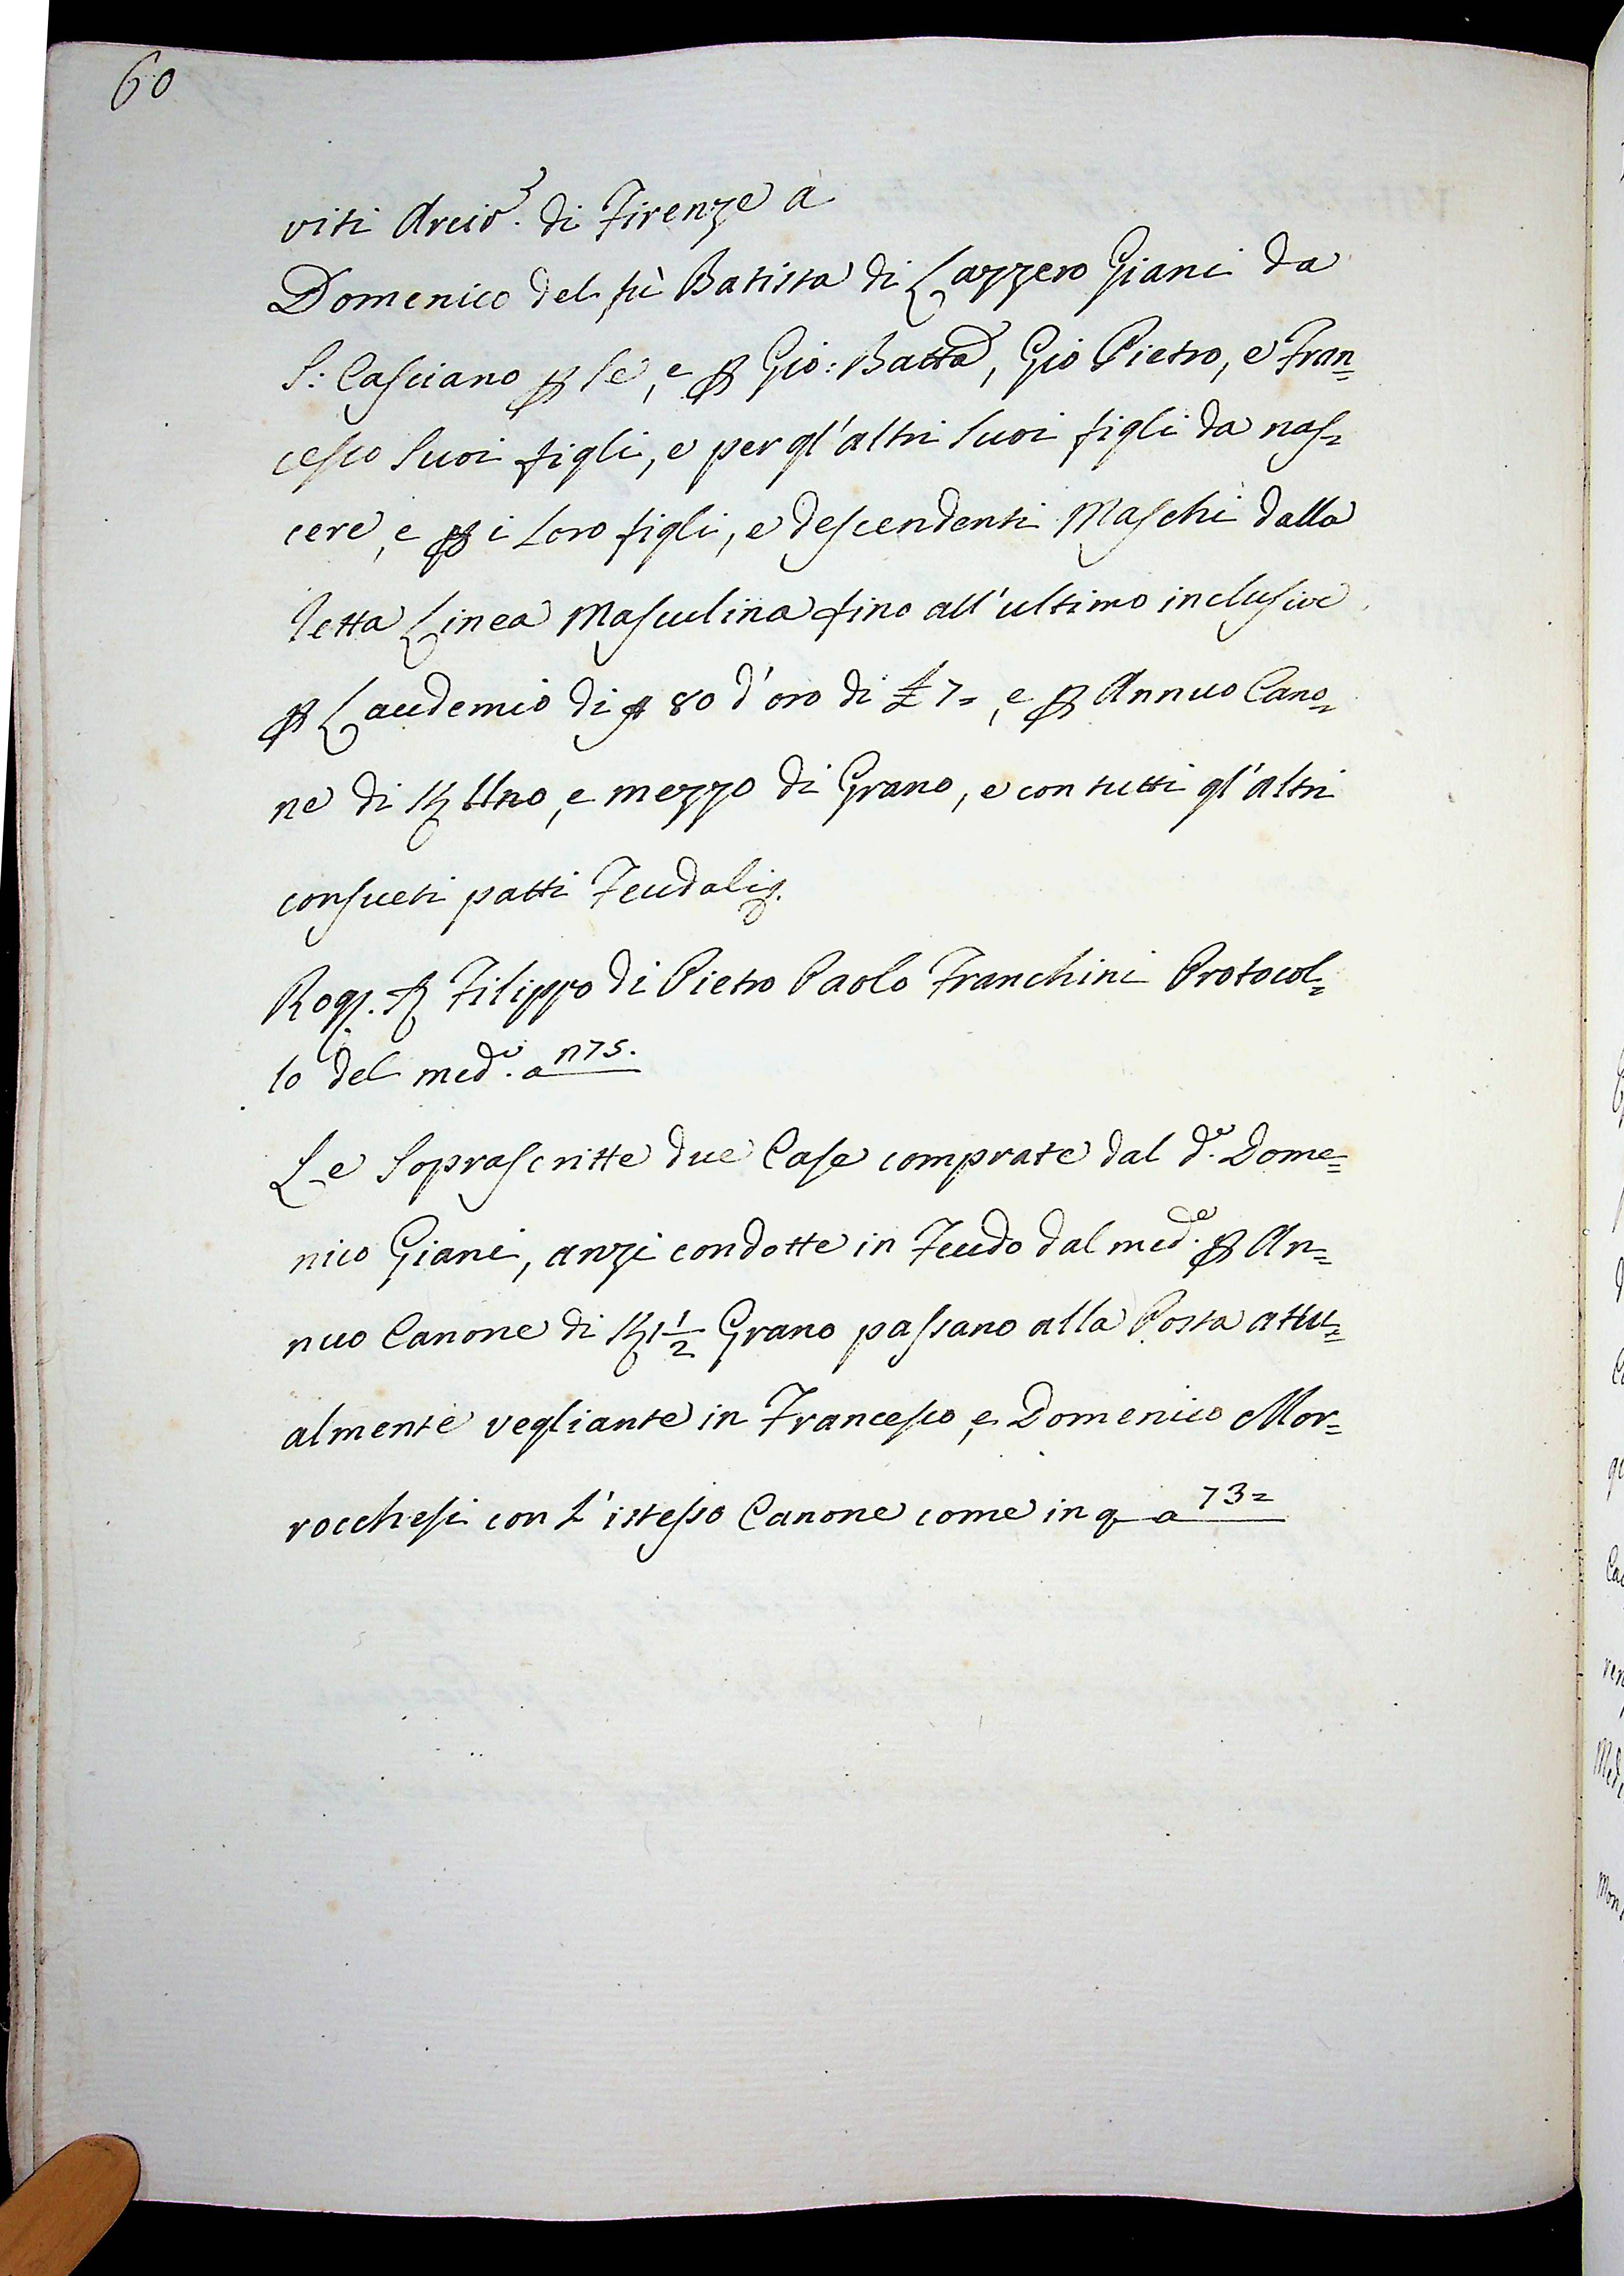 60
viti Arciv.ᵒ di Firenze à
Domenico del fù Batista di Lazzero Giani da
S: Casciano p se, e p Gio: Batta, Gio Pietro, e Fran=
cesco Suoi figli, e per gl'altri Suoi figli da nas=
cere, e p i Loro figli, e descendenti Maschi dalla
Letta Linea Masculina fino all'ultimo inclusive
p Laudemio di 80 d'oro di £ 7=, e p Annuo Cano=
ne di Uno, e mezzo di Grano, e con tutti gl'altri
consueti patti Feudali
Rog. Filippo di Pietro Paolo Franchini Protocol=
lo del med.ᵒ a 175.
Le Soprascritte due Case comprate dal d.ᵒ Dome=
nico Giani, anzi condotte in Feudo dal med.ᵒ p An=
nuo Canone di 1½ Grano passano alla Posta attu=
almente vegliante in Francesco, e Domenico Mor=
rocchesi con L'istesso Canone come in q a 73=